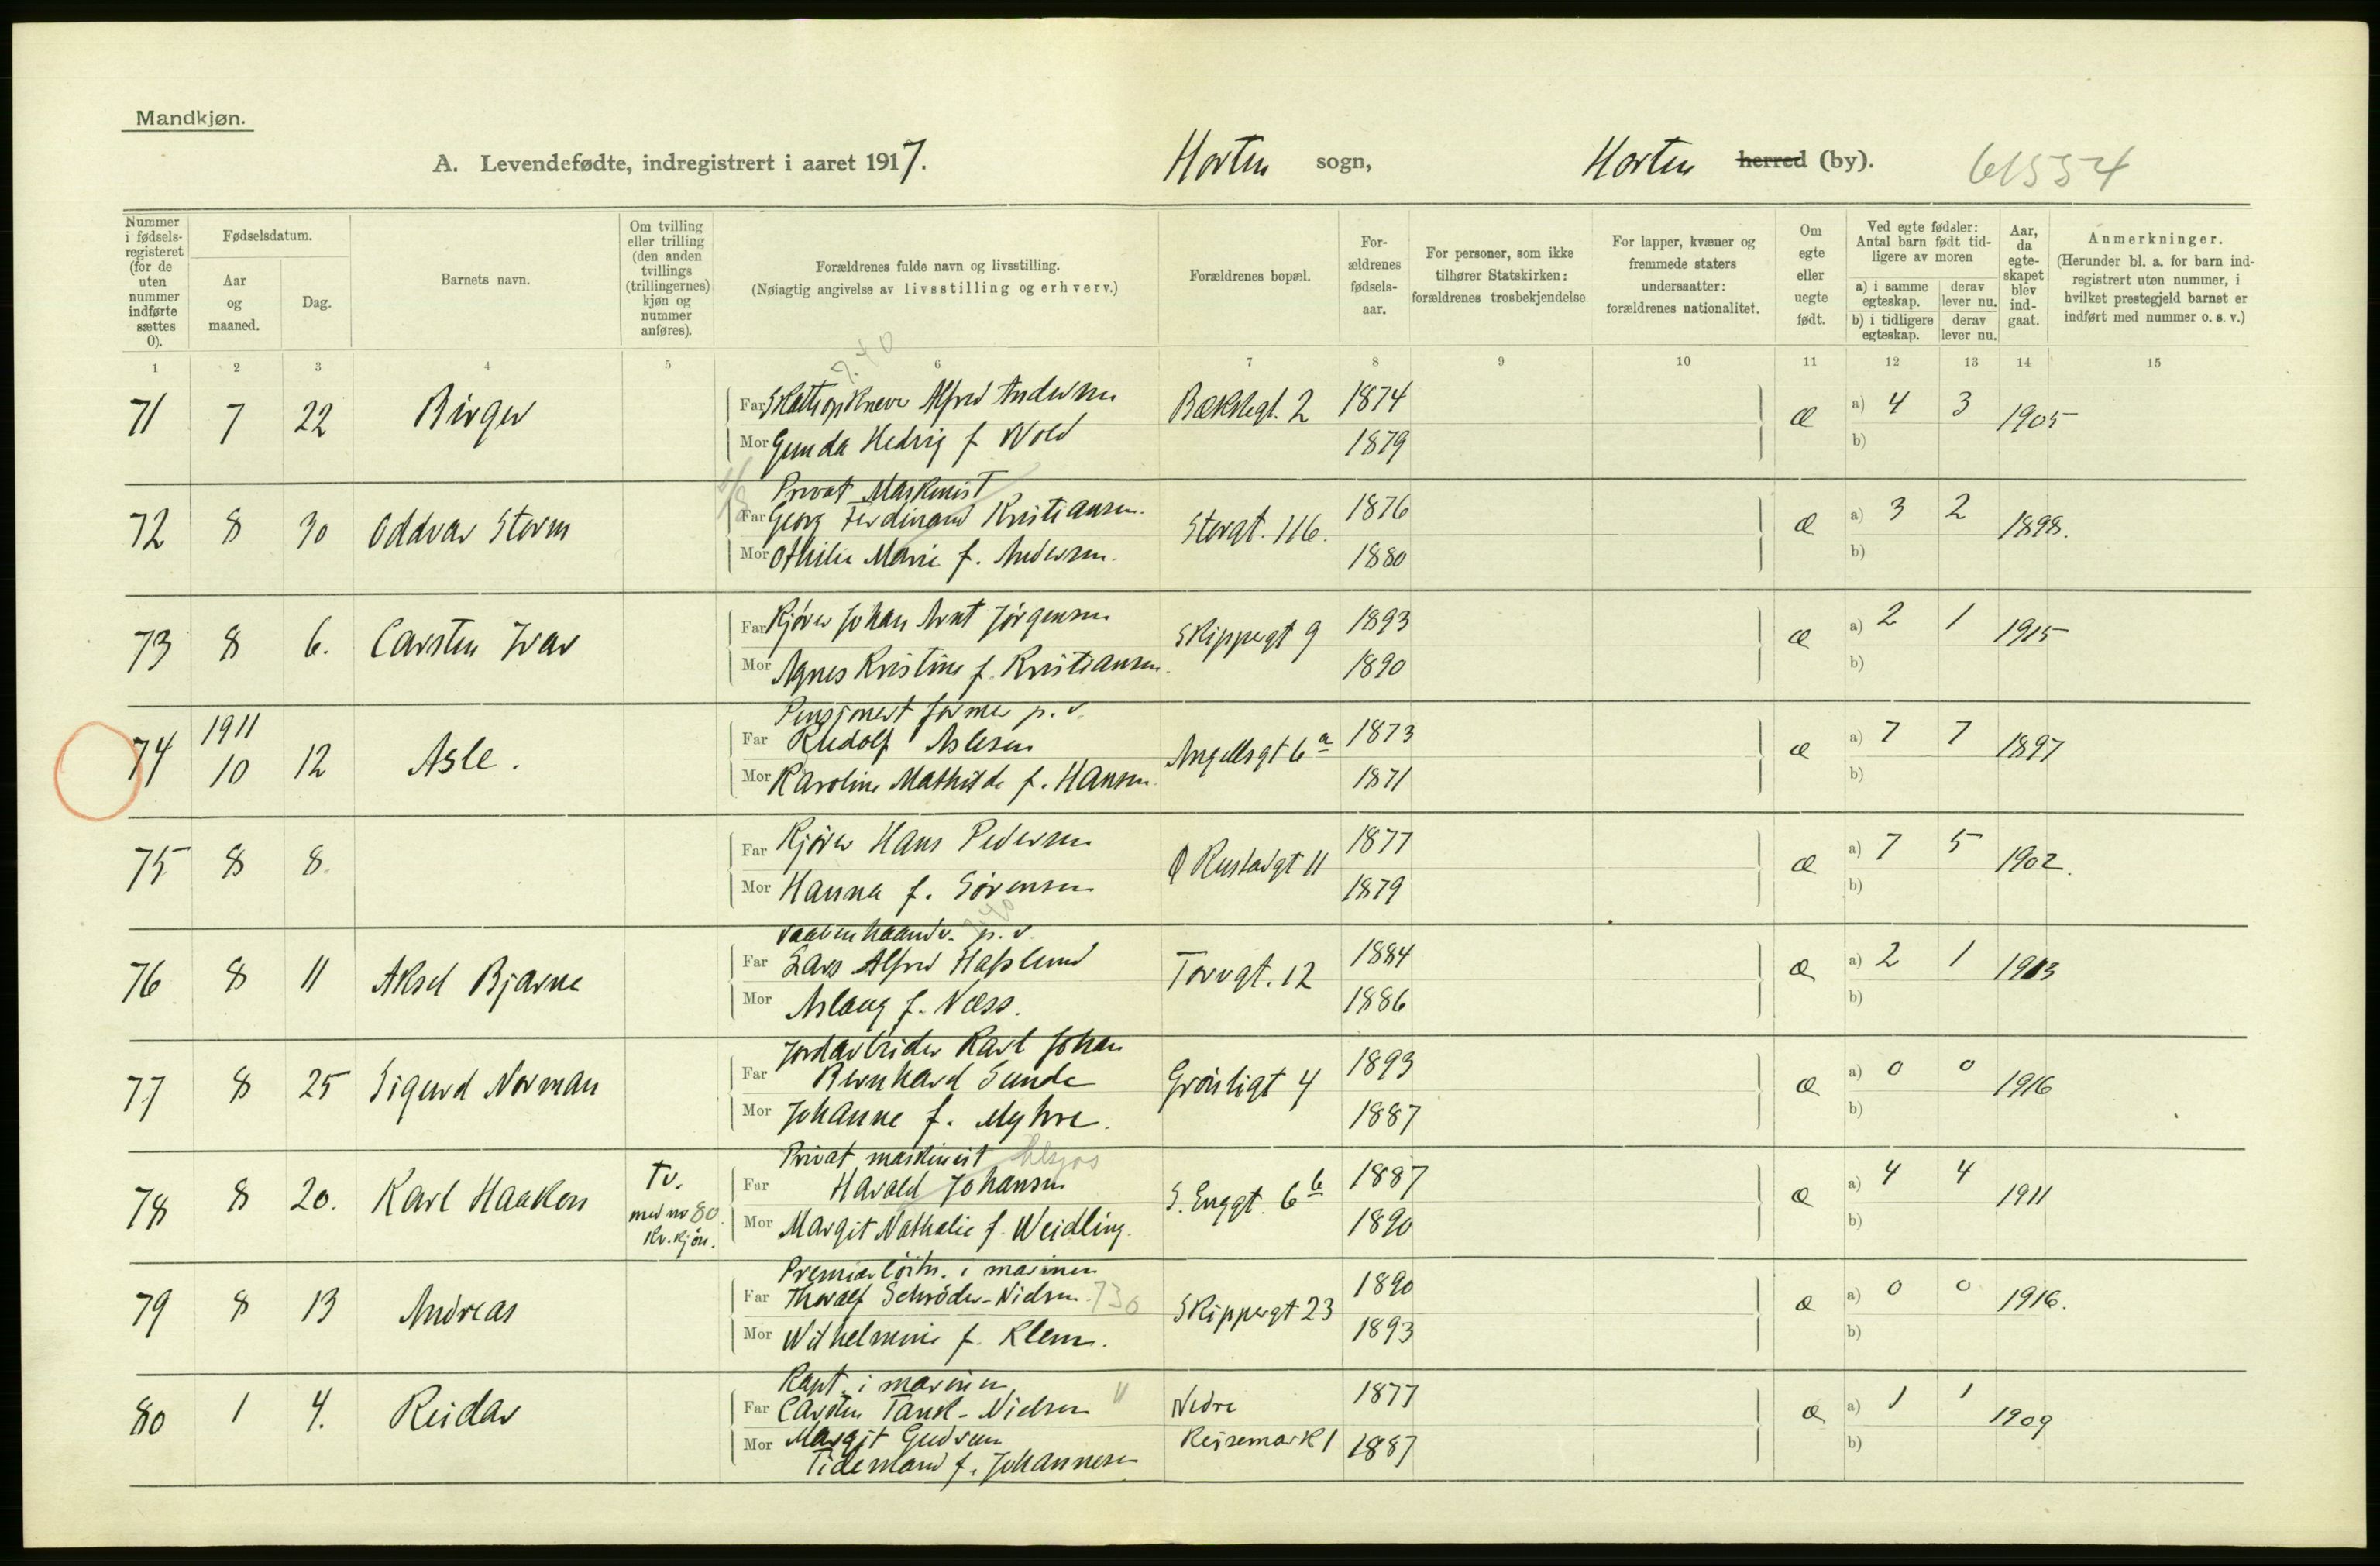 Mandkjøn.
A. Levendefødte, indregistrert i aaret 1917. Horten sogn, Horten herred (by). 61554
Nummer i fødsels-registeret (for de uten nummer indførte sættes 0).
Fødselsdatum.
Aar og maaned.
Dag.
Barnets navn.
Om tvilling eller trilling (den anden tvillings (trillingernes) kjøn og nummer anføres).
Forældrenes fulde navn og livsstilling.
(Nøiagtig angivelse av livsstilling og erhverv.)
Forældrenes bopæl.
For-ældrenes fødsels-aar.
For personer, som ikke tilhører Statskirken: forældrenes trosbekjendelse
For lapper, kvæner og fremmede staters undersaatter: forældrenes nationalitet.
Om egte eller uegte født.
Ved egte fødsler: Antal barn født tid-ligere av moren
a) i samme egteskap. derav lever nu.
b) i tidligere egteskap. derav lever nu.
Aar, da egte-skapet blev ind-gaat.
Anmerkninger.
(Herunder bl. a. for barn ind-registrert uten nummer, i hvilket prestegjeld barnet er indført med nummer o. s. v.)
1 2 3 4 5 6 7 8 9 10 11 12 13 14 15
71 7 22 Birger Far Alfred Andersen 1874 æ a) 4 3 1905
Mor Gunda Hedvig f. Wold 1879 b)
Privat Maskinist
72 8 30 Oddvar Storm Far Georg Ferdinand Kristiansen. Storgt. 116. 1876 æ a) 3 2 1898.
Mor Othilie Marie f. Andersen. 1880 b)
73 8 6. Carsten Ivar Far Kjører Johan Arnt Jörgensen Skippergt 9 1893 æ a) 2 1 1915
Mor Agnes Kristine f. Kristiansen. 1890 b)
Pensjonert former p. v.
74 1911 10 12 Asle. Far Rudolf Aslesen Angellsgt 6 a 1873 æ a) 7 7 1897
Mor Karoline Mathilde f. Hansen. 1871 b)
75 8 8. Far Kjører Hans Pedersen Rustadgt 11 1877 æ a) 7 5 1902.
Mor Hanna f. Sörensen 1879 b)
Vaabenhaandv. p. v.
76 8 11 Aksel Bjarne Far Lars Alfred Hafslund Torvgt. 12 1884 æ a) 2 1 1913
Mor Aslaug f. Næss. 1886 b)
Jordarbeider Karl Johan
77 8 25 Sigurd Norman Far Bernhard Sunde Grönligt 4 1893 æ a) 0 0 1916
Mor Johanne f. Myhre. 1887 b)
Privat maskinist
78 8 20. Karl Haakon Tv. med no 80. Kv. kjön. Far Harald Johansen S. Enggt. 6 b 1887 æ a) 4 4 1911
Mor Margit Nathalie f. Weidling. 1890 b)
Premierlöitn. i marinen
79 8 13 Andreas Far Thoralf Schröder-Nielsen 730 Skippergt 23 1890 æ a) 0 0 1916.
Mor Wilhelmine f. Klem. 1893 b)
Kapt. i marinen
80 1 4. Reidar Far Carsten Tank-Nielsen " Nedre 1877 æ a) 1 1 1909
Mor Margit Gudrun Keisemark 1 1887 b)
Tidemand f. Johannesen